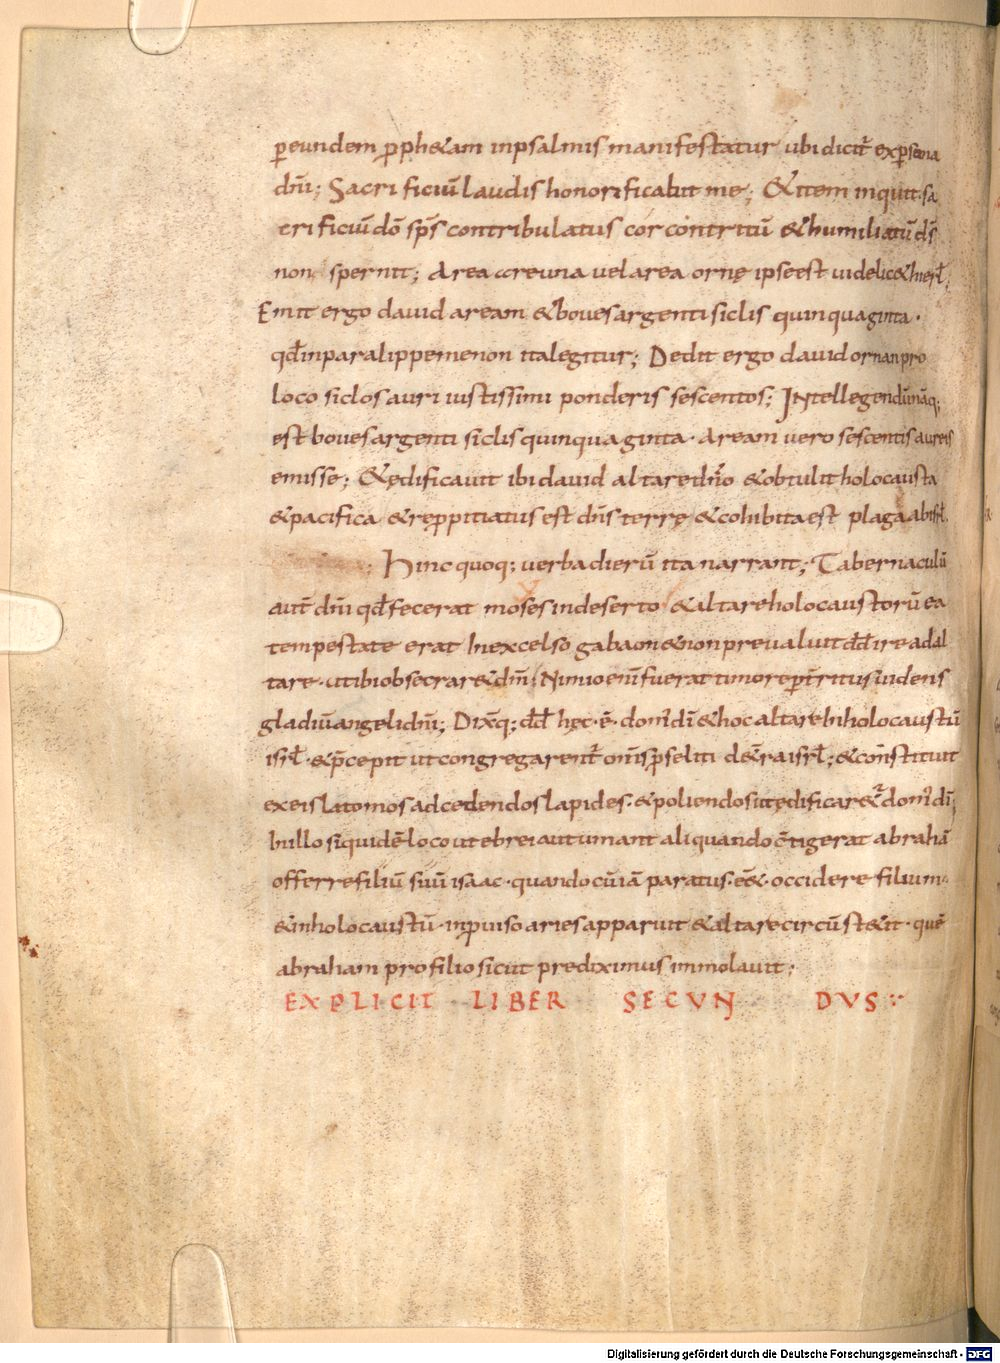 p̲eundem ꝓph&am inpsalmis manifestatur ubi dicit̄ exp̲sona
dn̄i; Sacrificiū laudis honorificabit me; &item inquit. sa
crificiū dō sp̄s contribulatus cor contritū &humiliatū d̄s
non spernit; Area areuna vel area ornę ipse est videlic& hierl̄;
Emit ergo david aream &boves argenti siclis quinquaginta.
qđ in paralippemenon ita legitur; Dedit ergo david ornan pro
loco siclos auri iustissimi ponderis sescentos; Intellegendū nāq;
est boves argenti siclis quinquaginta. aream vero sescentis aureis
emisse; &ędificavit ibi david altare dn̄o &obtulit holocausta
&pacifica &reꝓpitiatus est dn̄s terrę &cohibita est plaga ab isrl̄.
Hinc quoq; verba dierū ita narrant; Tabernaculū
aut̄ dn̄i qđ fecerat moses in deserto &altare holocaustorū ea
tempestate erat in excelso gabaon &non prevaluit dd̄ ire ad al
tare. ut ibi obsecrar& dn̄i; Nimio eni̅ fuerat timore p̲t̄ritus videns
gladiū angeli dn̄i; Dix̄q; dd̄ hęc. ē. dom̄ dī &hoc altare in holocaustū
isrl̄. &p̄cepit ut congregarent̄ om̄s ꝓseliti de t̄ra isrl̄; &con̄stituit
ex eis latomos ad cedendos lapides. &poliendos ut ędificar&̄ dom̄ dī;
In illo siquidē loco ut ebrei autumant aliquando c̄tigerat abrahā
offerre filiū suū isaac. quando cū iā paratus. ēē&. occidere filium.
&in holocaustū. inꝓviso aries apparuit &altare circūst&it. quē
abraham pro filio sicut prediximus immolavit;
EXPLICIT LIBER SECUNDVS
Digitalisierung gefördert durch die Deutsche Forschungsgemeinschaft - DFG